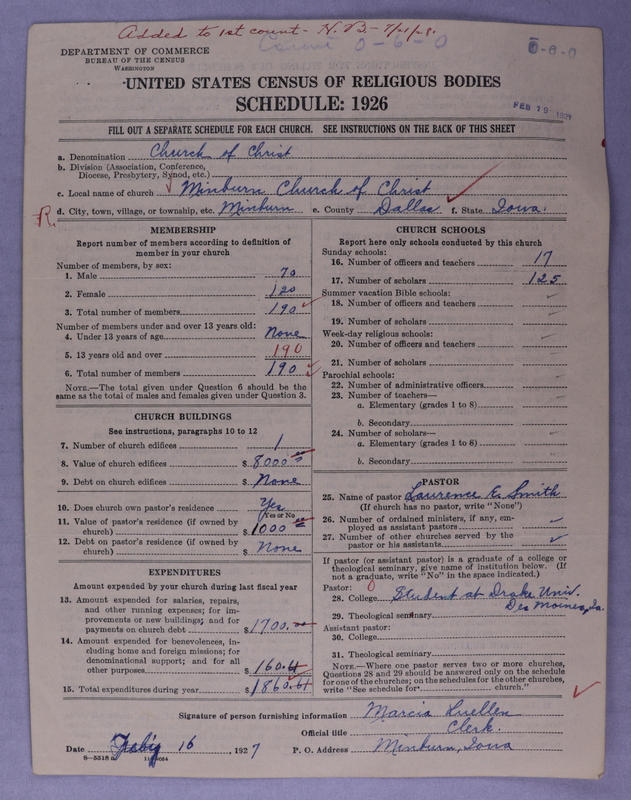 Added to 1st count - H. B. - 7/21/28.
0-6-0
0-6-0
DEPARTMENT OF COMMERCE
BUREAU OF THE CENSUS
WASHINGTON
UNITED STATES CENSUS OF RELIGIOUS BODIES
SCHEDULE: 1926
FEB 19 1927
FILL OUT A SEPARATE SCHEDULE FOR EACH CHURCH. SEE INSTRUCTIONS ON THE BACK OF THIS SHEET
a. Denomination Church of Christ
b. Division (Association, Conference,
Diocese, Presbytery, Synod, etc.)
c. Local name of church Minburn Church of Christ
R. d. City, town, village, or township, etc. Minburn e. County Dallas f. State Iowa.
MEMBERSHIP
Report number of members according to definition of
member in your church
Number of members, by sex:
1. Male 70
2. Female 120
3. Total number of members 190
Number of members under and over 13 years old:
4. Under 13 years of age None
5. 13 years old and over 190
6. Total number of members 190
NOTE.—The total given under Question 6 should be the
same as the total of males and females given under Question 3.
CHURCH BUILDINGS
See instructions, paragraphs 10 to 12
7. Number of church edifices 1
8. Value of church edifices $ 8000 00
9. Debt on church edifices $ None
10. Does church own pastor's residence Yes
(Yes or No)
11. Value of pastor's residence (if owned by
church) $ 1000 00
12. Debt on pastor's residence (if owned by
church) $ None
EXPENDITURES
Amount expended by your church during last fiscal year
13. Amount expended for salaries, repairs,
and other running expenses; for im-
provements or new buildings; and for
payments on church debt $ 1700.00
14. Amount expended for benevolences, in-
cluding home and foreign missions; for
denominational support; and for all
other purposes $ 160.61
15. Total expenditures during year $ 1860.61
CHURCH SCHOOLS
Report here only schools conducted by this church
Sunday schools:
16. Number of officers and teachers 17
17. Number of scholars 125
Summer vacation Bible schools:
18. Number of officers and teachers
19. Number of scholars
Week-day religious schools:
20. Number of officers and teachers
21. Number of scholars
Parochial schools:
22. Number of administrative officers
23. Number of teachers—
a. Elementary (grades 1 to 8)
b. Secondary
24. Number of scholars—
a. Elementary (grades 1 to 8)
b. Secondary
PASTOR
25. Name of pastor Laurence E. Smith
(If church has no pastor, write "None")
26. Number of ordained ministers, if any, em-
ployed as assistant pastors
27. Number of other churches served by the
pastor or his assistants
If pastor (or assistant pastor) is a graduate of a college or
theological seminary, give name of institution below. (If
not a graduate, write "No" in the space indicated.)
Pastor: 0
28. College Student at Drake Univ.
Des Moines, Ia.
29. Theological seminary
Assistant pastor:
30. College
31. Theological seminary
NOTE.—Where one pastor serves two or more churches,
Questions 28 and 29 should be answered only on the schedule
for one of the churches; on the schedules for the other churches,
write "See schedule for church."
Signature of person furnishing information Marcia Luellen
Official title Clerk.
Date Feb'y 16, 1927 P. O. Address Minburn, Iowa
8-5318 a